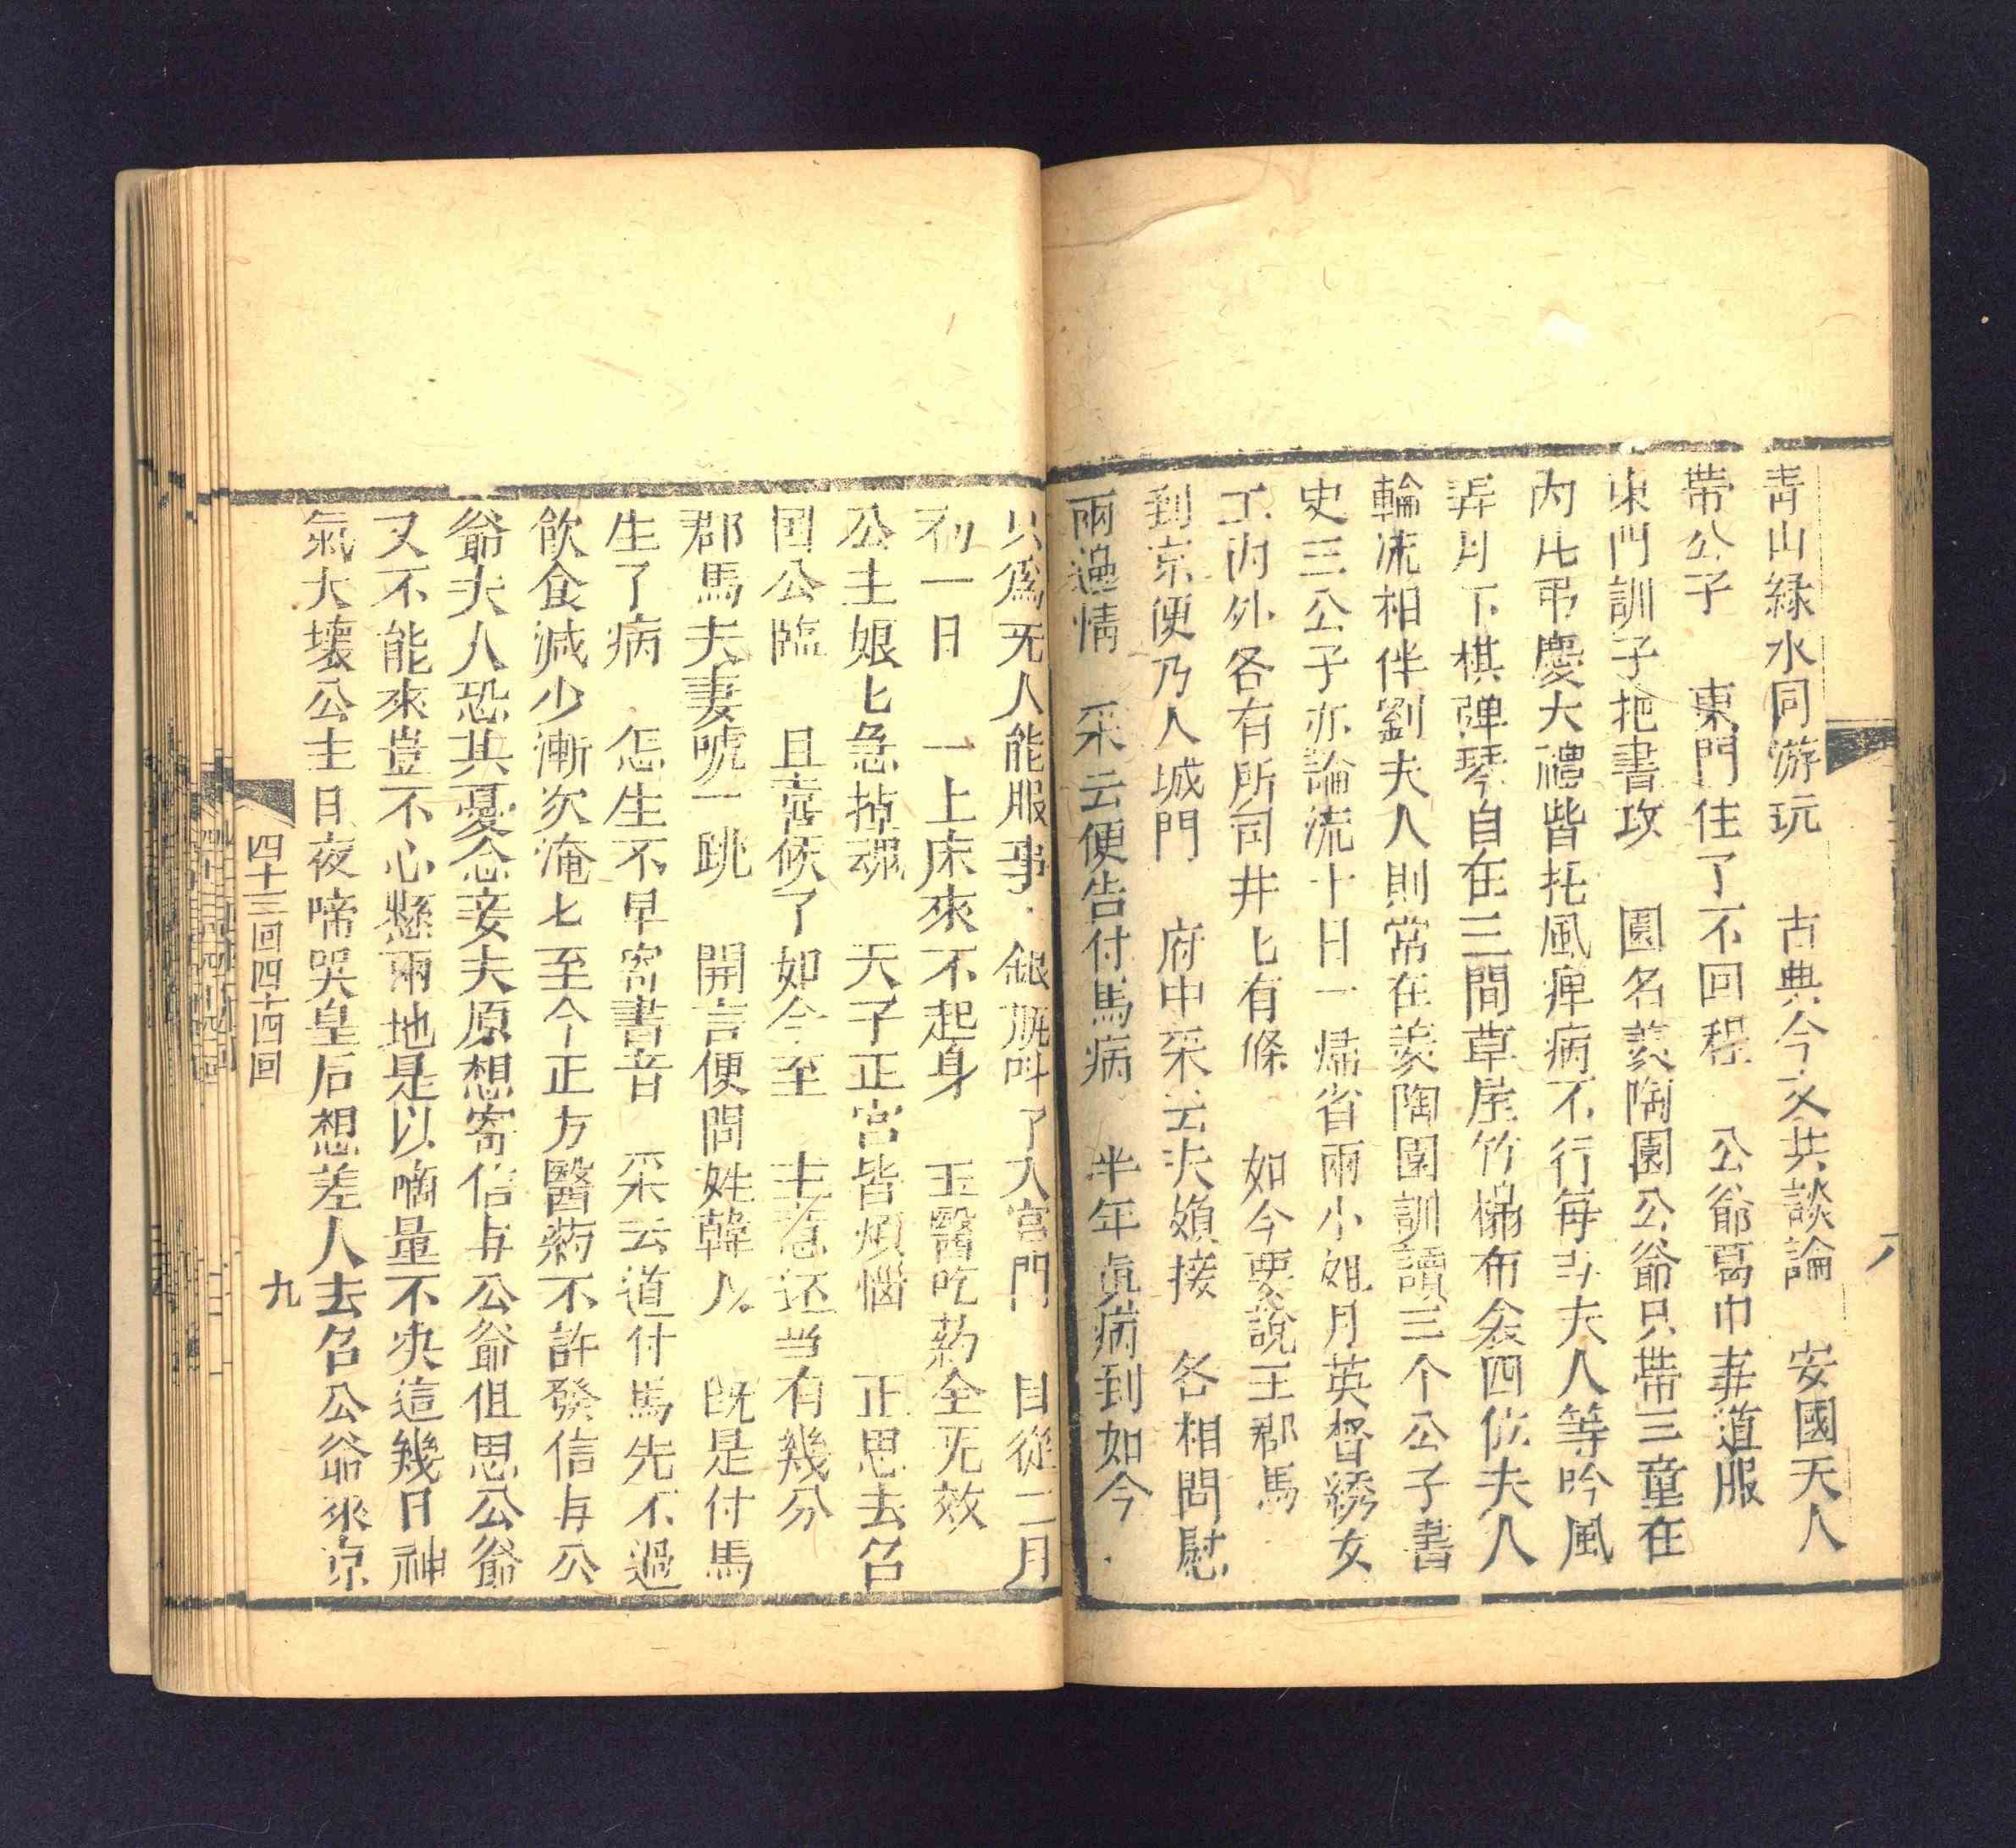 青山緑水同游玩　古典今文共談論　安國夫人
帶公子　東門住了不回程　公爺葛巾事道服
東門訓子把書攻　園名羨陶園公爺只帶三童在
內凡弔慶大禮皆托風痺病不行每与夫人等吟風
弄月下棋弹琴自在三間草屋竹榻布衾四位夫人
輪流相伴劉夫人則常在羨陶園訓讀三个公子書
史三公子亦論流十日一歸省兩小姐月英督綉女
工內外各有所司井匕有條　如今要說王郡馬
到京便乃人城門　府中采云夫婦接　各相問慰
兩邊情　采云便告付馬病　半年眞病到如今
只爲旡人能服事　銀瓶叫了大宮門　自從二月
初一日　一上床來不起身　玉醫吃葯全旡效
公主娘匕急掉魂　天子正宮皆煩惱　正思去召
囯公臨　且喜候了如今至　主意还当有幾分
郡馬夫妻唬一跳　開言便問姓韓人　旣是付馬
生了病　怎生不早寄書音　采云道付馬先不過
飲食減少漸次淹匕至今正方醫葯不許發信与公
爺夫人恐其憂念妾夫原想寄信与公爺但思公爺
又不能來豈不心懸兩地是以啇量不决這幾日神
氣大壞公主日夜啼哭皇后想差人去召公爺來京
四十三回四十四回
九
八